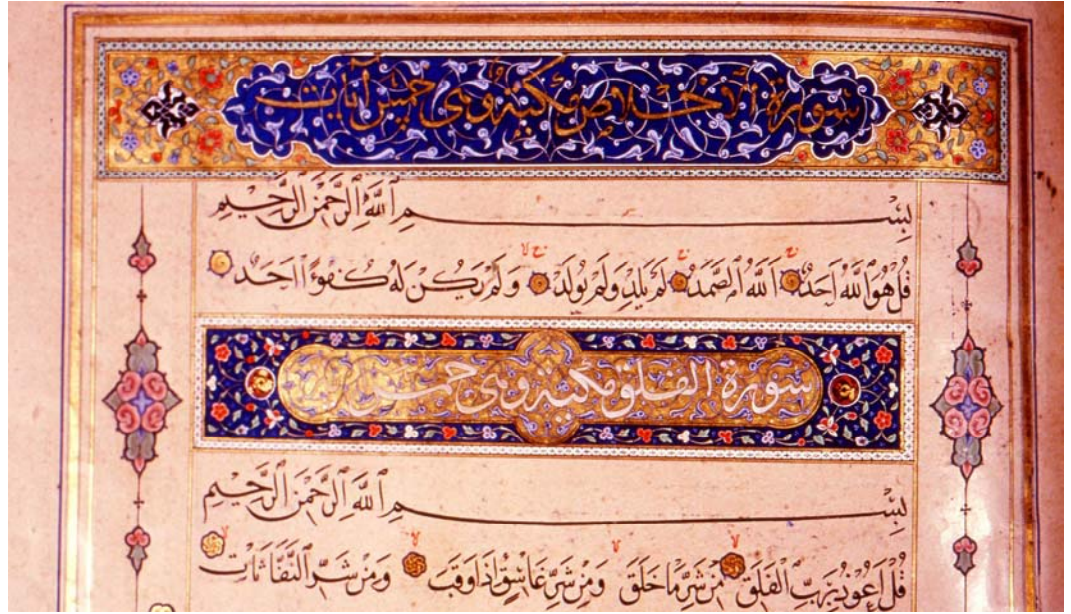 سورة الاخلاص مكية وهى خمس آيات
بِسْمِ اللَّهِ الرَّحْمٰنِ الرَّحِيمِ
قُلْ هُوَ اللَّهُ اَحَدٌ اَللَّهُ الصَّمَدُ لَمْ يَلِدْ وَلَمْ يُولَدْ وَلَمْ يَكُنْ لَهُ كُفُوًا اَحَدٌ
سورة الفلق مكية وهى خمس
بِسْمِ اللَّهِ الرَّحْمٰنِ الرَّحِيمِ
قُلْ اَعُوذُ بِرَبِّ الْفَلَقِ مِنْ شَرِّ مَا خَلَقَ وَمِنْ شَرِّ غَاسِقٍ اِذَا وَقَبَ وَمِنْ شَرِّ النَّفَّاثَاتِ